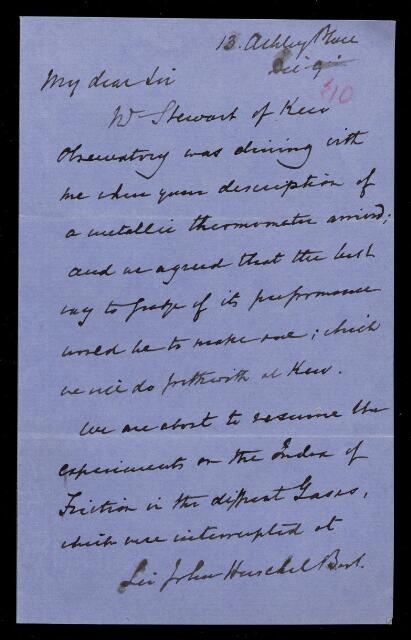 13. Ashley Place
Dec. 9
£10
My dear Sir
Mr Stewart of Kew
Observatory was dining with
me when your description of
a metallic thermometer arrived;
and we agreed that the best
way to judge of its performance
would be to make one; which
we will do forthwith at Kew.
We are about to resume the
experiments on the Index of
Friction in the different Gases,
which were interrupted at
Sir John Herschel Bart.